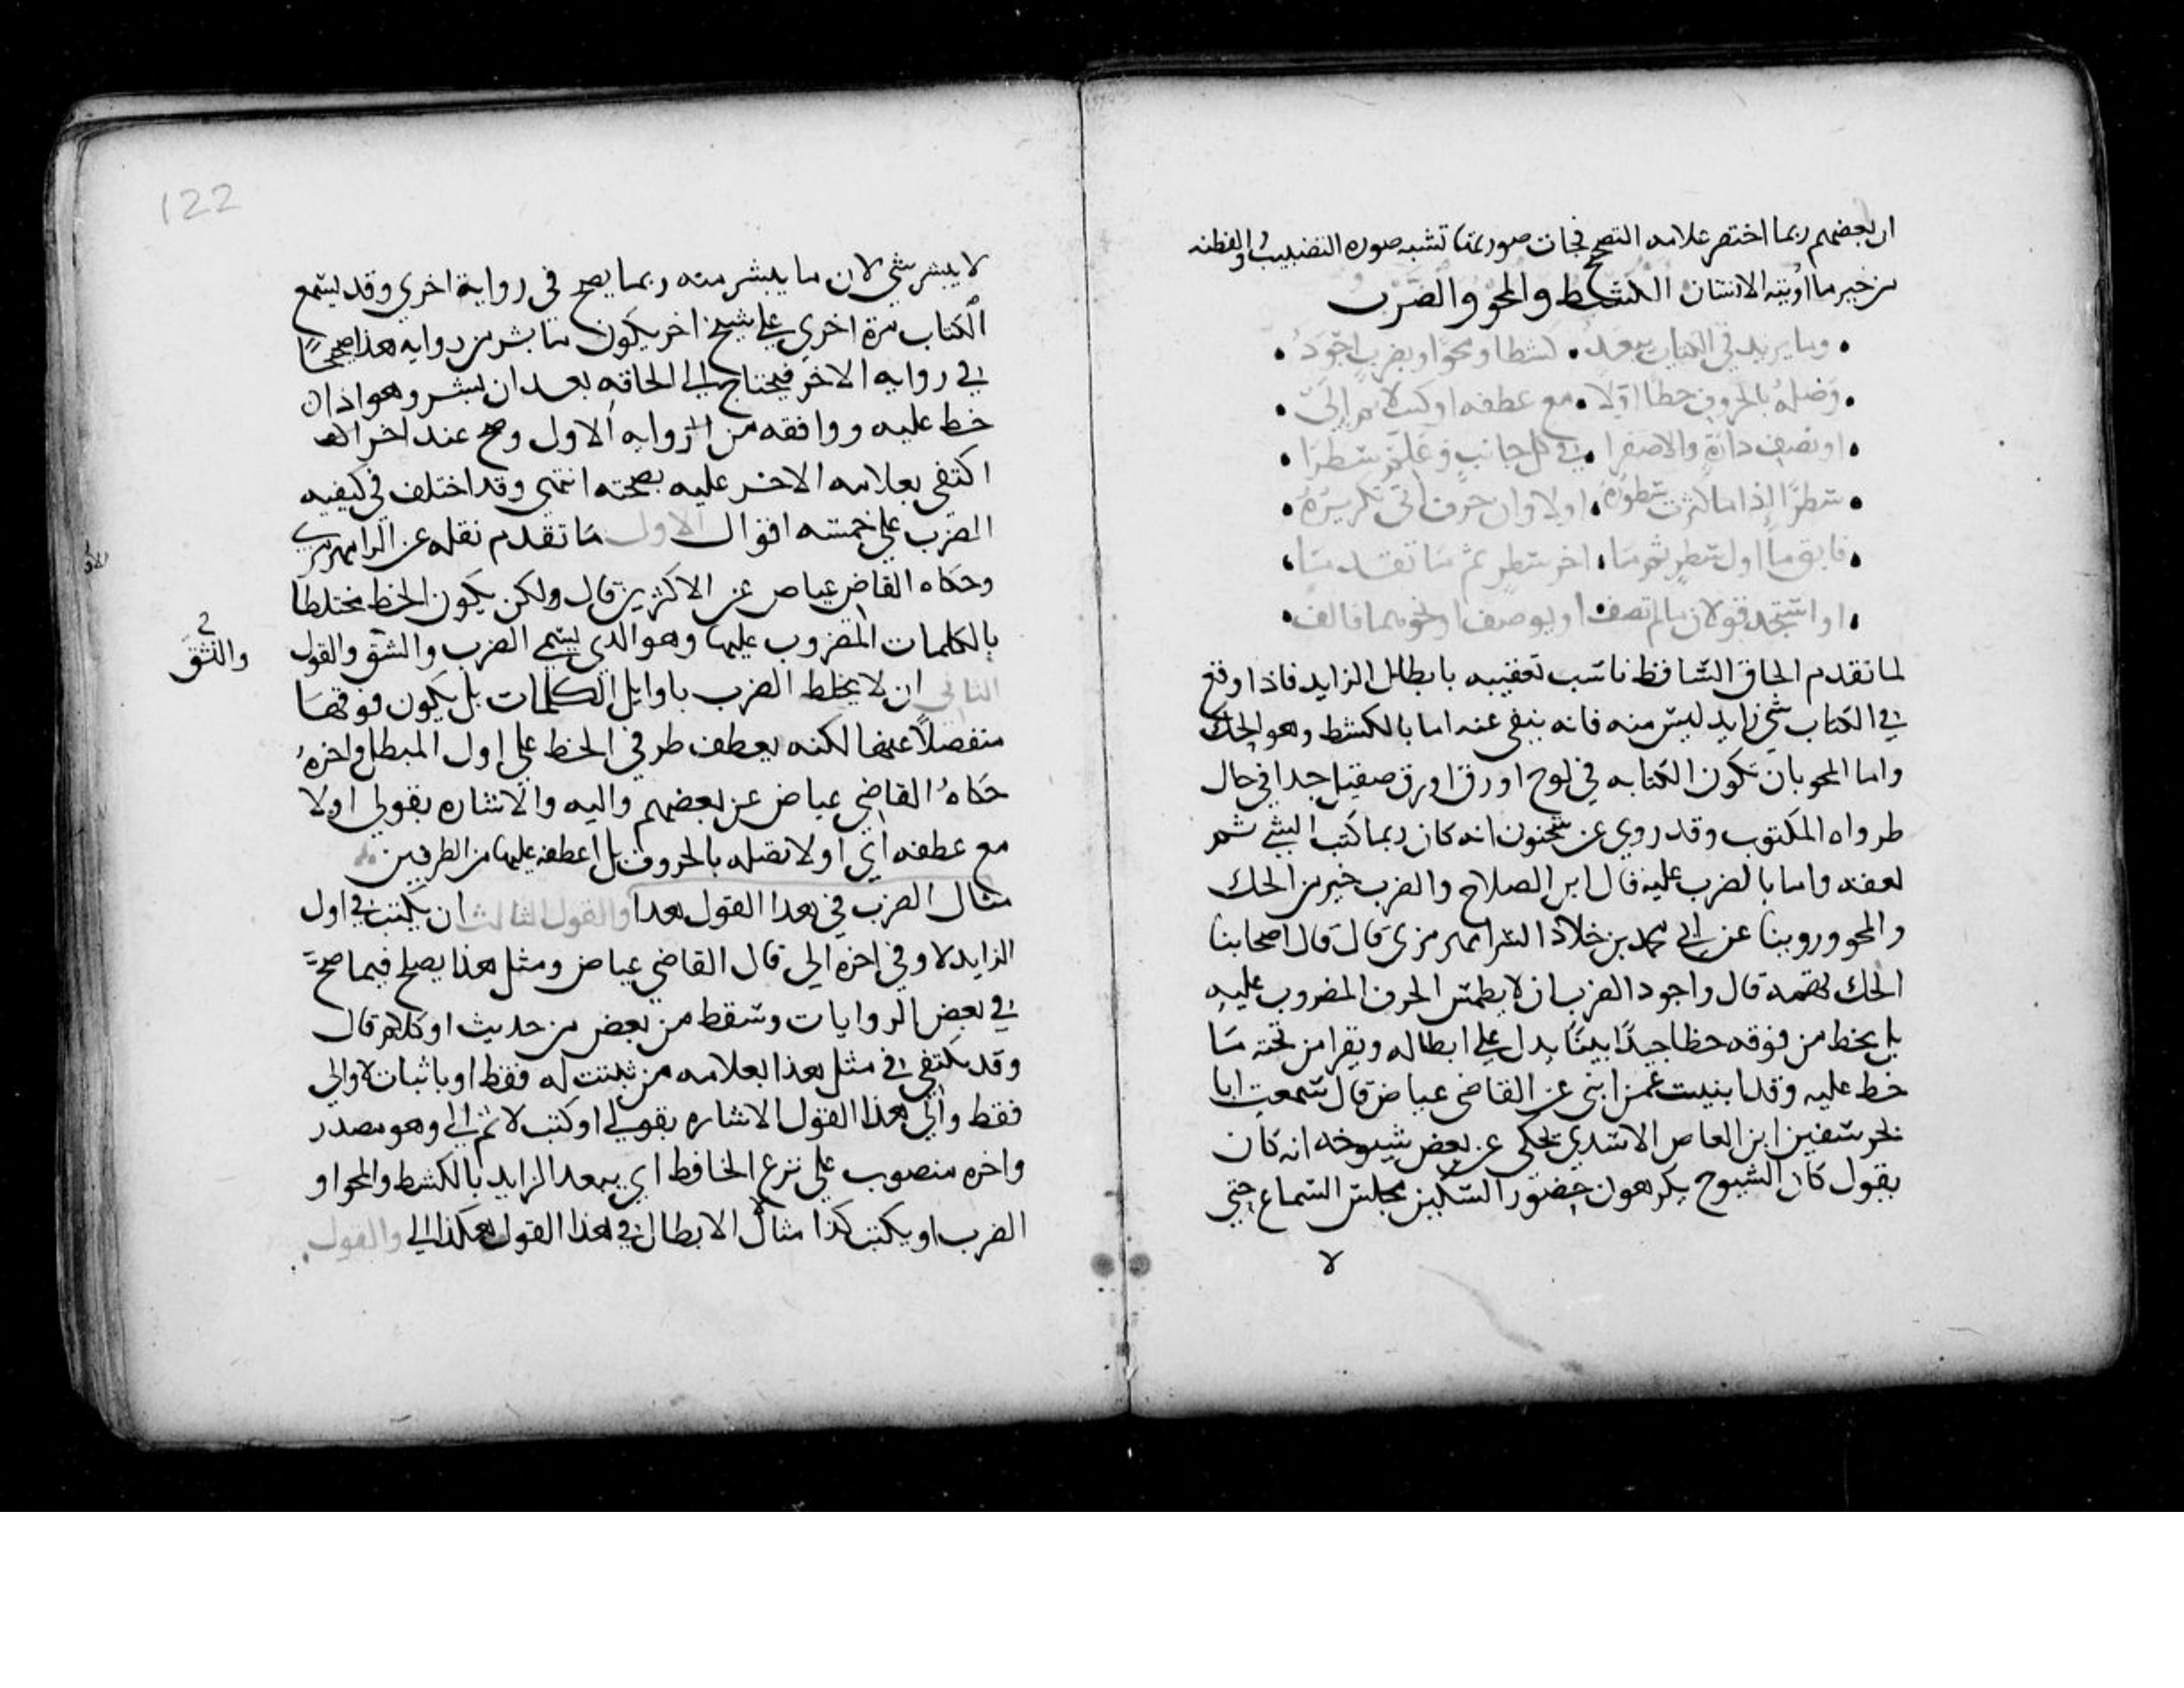 ان بعضهم ربما اختصر علامه التصحيح فجات صورتها تشبه صوره التضبيب والفطنه
من خير ما اوتيه الانسان الكشط والمحو والضرب
وما يزيد في الكتاب يبعد • كشطا ومحوا وبضرب اجود
وصله بالحروف خطا اولا • مع عطفه او كتب لا ثم الى
او نصف دارة والا صفرا • في كل جانب وعلم سطرا
سطرا اذا ما كثرت سطوره • اولا وان حرف اتى تكريره
فابق ما اول سطر ثم ما • اخر سطر ثم ما تقدما
او استجد قولان ما لم يضف • او يوصف او نحوهما فالف
لما تقدم الحاق الساقط ناسب تعقيبه بابطال الزايد فاذا وقع
في الكتاب شي زايد ليس منه فانه ينفى عنه اما بالكشط وهو الحك
واما المحو بان تكون الكتابه في لوح او رق او ورق صقيل جدا في حال
طرواه المكتوب وقد روي عن سحنون انه كان ربما كتب الشي ثم
لعقه واما بالضرب عليه قال ابن الصلاح والضرب خير من الحك
والمحو وروينا عن ابي محمد بن خلاد الرامهرمزي قال قال اصحابنا
الحك تهمه قال واجود الضرب ان لا يطمس الحرف المضروب عليه
بل يخط من فوقه خطا جيدا بينا يدل على ابطاله ويقرا من تحته ما
خط عليه وقد انبيت عمن انبي عن القاضي عياض قال سمعت ابا
بحر سفين ابن العاص الاسدي يحكي عن بعض شيوخه انه كان
يقول كان الشيوخ يكرهون حضور السكين مجلس السماع حتى
لا
122
لا يبشر شي لان ما يبشر منه ربما يصح في رواية اخرى وقد يسمع
الكتاب مرة اخرى على شيخ اخر يكون ما بشر من روايه هذا صحيحا
في روايه الاخر فيحتاج الى الحاقه بعد ان بشر وهو اذا
خط عليه ووافقه من الروايه الاول وصح عند الاخر
اكتفى بعلامه الاخر عليه بصحته انتهى وقد اختلف في كيفيه
الضرب على خمسه اقوال الاول ما تقدم نقله عن الرامهرمزي
وحكاه القاضي عياض عن الاكثرين قال ولكن يكون الخط مختلطا
بالكلمات المضروب عليها وهو الذي يسمى الضرب والشق والقول
والشق
الثاني ان لا يخلط الضرب باوايل الكلمات بل يكون فوقها
منفصلا عنها لكنه يعطف طرفي الخط على اول المبطل واخره
حكاه القاضي عياض عن بعضهم واليه والاشاره بقولي اولا
مع عطفه اي او لا تصله بالحروف بل اعطفه عليها من الطرفين
مثال الضرب في هذا القول هذا والقول الثالث ان يكتب في اول
الزايد لا وفي اخره الى قال القاضي عياض ومثل هذا يصلح فيما صح
في بعض الروايات وسقط من بعض من حديث او كلام قال
وقد يكتفي في مثل هذا بعلامه من ثبتت له فقط او باثبات لا والى
فقط والى هذا القول الاشاره بقولي او كتب لا ثم الى وهو مصدر
واخره منصوب على نزع الخافظ اي يبعد الزايد بالكشط والمحو او
الضرب او يكتب كذا مثال الابطال في هذا القول هكذا الى والقول